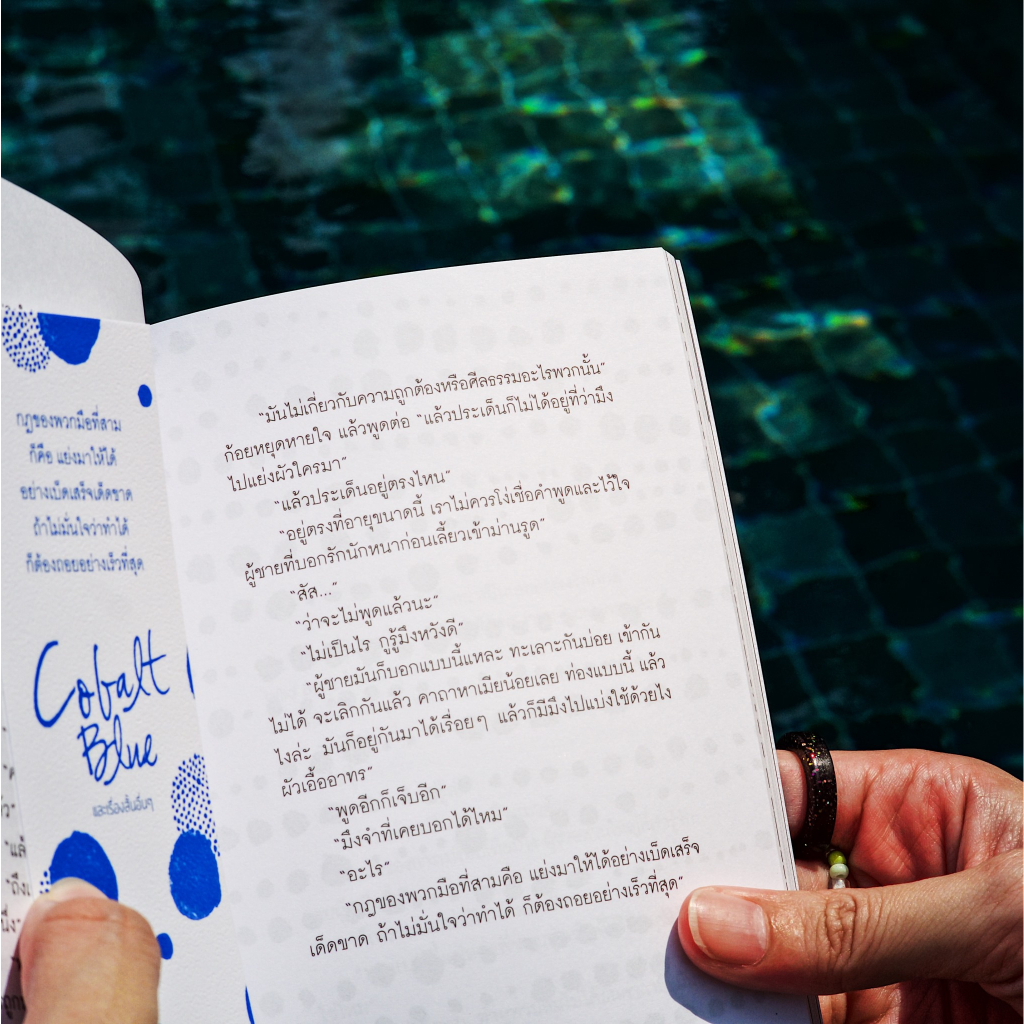 กฎของพวกมือที่สาม
ก็คือ แย่งมาให้ได้
อย่างเบ็ดเสร็จเด็ดขาด
ถ้าไม่มั่นใจว่าทำได้
ก็ต้องถอยอย่างเร็วที่สุด
Cobalt
Blue
และเรื่องสั้นอื่นๆ
“มันไม่เกี่ยวกับความถูกต้องหรือศีลธรรมอะไรพวกนั้น”
ก้อยหยุดหายใจ แล้วพูดต่อ “แล้วประเด็นก็ไม่ได้อยู่ที่ว่ามึง
ไปแย่งผัวใครมา”
“แล้วประเด็นอยู่ตรงไหน”
“อยู่ตรงที่อายุขนาดนี้ เราไม่ควรโง่เชื่อคำพูดและไว้ใจ
ผู้ชายที่บอกรักนักหนาก่อนเลี้ยวเข้าม่านรูด”
“สัส...”
“ว่าจะไม่พูดแล้วนะ”
“ไม่เป็นไร กูรู้มึงหวังดี”
“ผู้ชายมันก็บอกแบบนี้แหละ ทะเลาะกันบ่อย เข้ากัน
ไม่ได้ จะเลิกกันแล้ว คาถาหาเมียน้อยเลย ท่องแบบนี้ แล้ว
ไงล่ะ มันก็อยู่กันมาได้เรื่อยๆ แล้วก็มีมึงไปแบ่งใช้ด้วยไง
ผัวเอื้ออาทร”
“พูดอีกก็เจ็บอีก”
“มึงจำที่เคยบอกได้ไหม”
“อะไร”
“กฎของพวกมือที่สามคือ แย่งมาให้ได้อย่างเบ็ดเสร็จ
เด็ดขาด ถ้าไม่มั่นใจว่าทำได้ ก็ต้องถอยอย่างเร็วที่สุด”